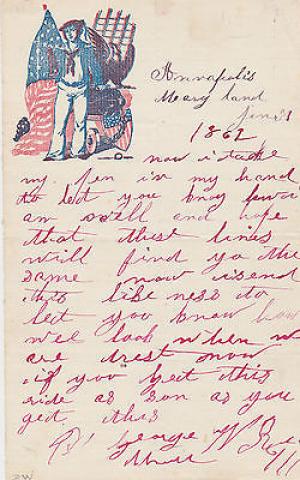 Annapolis
Mary land
1862
now i take
my pen in my hand
to let you know
am well and hope
that these lines
will find yo the
same now i send
this like ness to
let you know how
wee look when w
are drest now
if you get this
rite as son as you
get this
George W